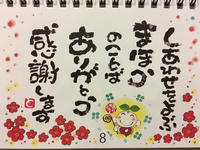 しあわせをよぶ
まほう
のことば
ありがとう
感謝します
8